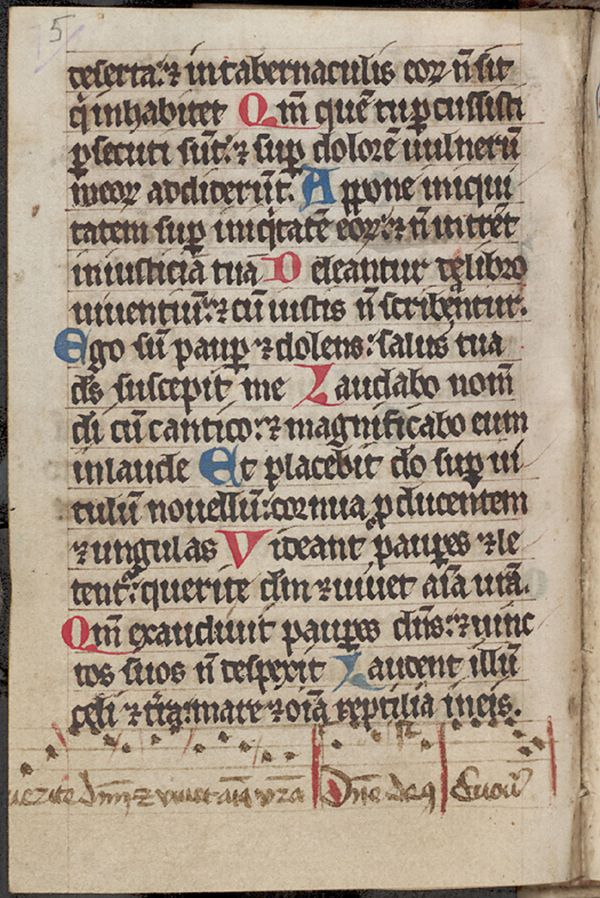 5
deserta: ⁊ in tabernaculis eoꝝ n̄ sit
qͥ inhabitet Qm̄ quē tu ꝑcussisti
ꝑsecuti sūt: ⁊ suꝑ dolorē uulnerū
meoꝝ addiderūt. Appone iniqui
tatem suꝑ iniqͥtatē eoꝝ: ⁊ n̄ intrēt
in iusticiā tuā Deleantur de libro
uiuentiū: ⁊ cū iustis n̄ scribentur.
Ego sū pauꝑ ⁊ dolens: salus tua
ds̄ suscepit me Laudabo nom̄
di cū cantico: ⁊ magnificabo eum
in laude Et placebit do suꝑ ui
tulū nouellū: cornua ꝓducentem
⁊ ungulas Videant pauꝑes ⁊ le
tent᷑: querite dm̄ ⁊ uiuet aīa urā.
Qm̄ exaudiuit pauꝑes dn̄s: ⁊ uinc
tos suos n̄ despexit Laudent illū
celi ⁊ tr̄a: mare ⁊ oīa reptilia in eis.
uerite dnm̄ ⁊ viuet aīa vr̄a Dn̄e deꝯ Euou